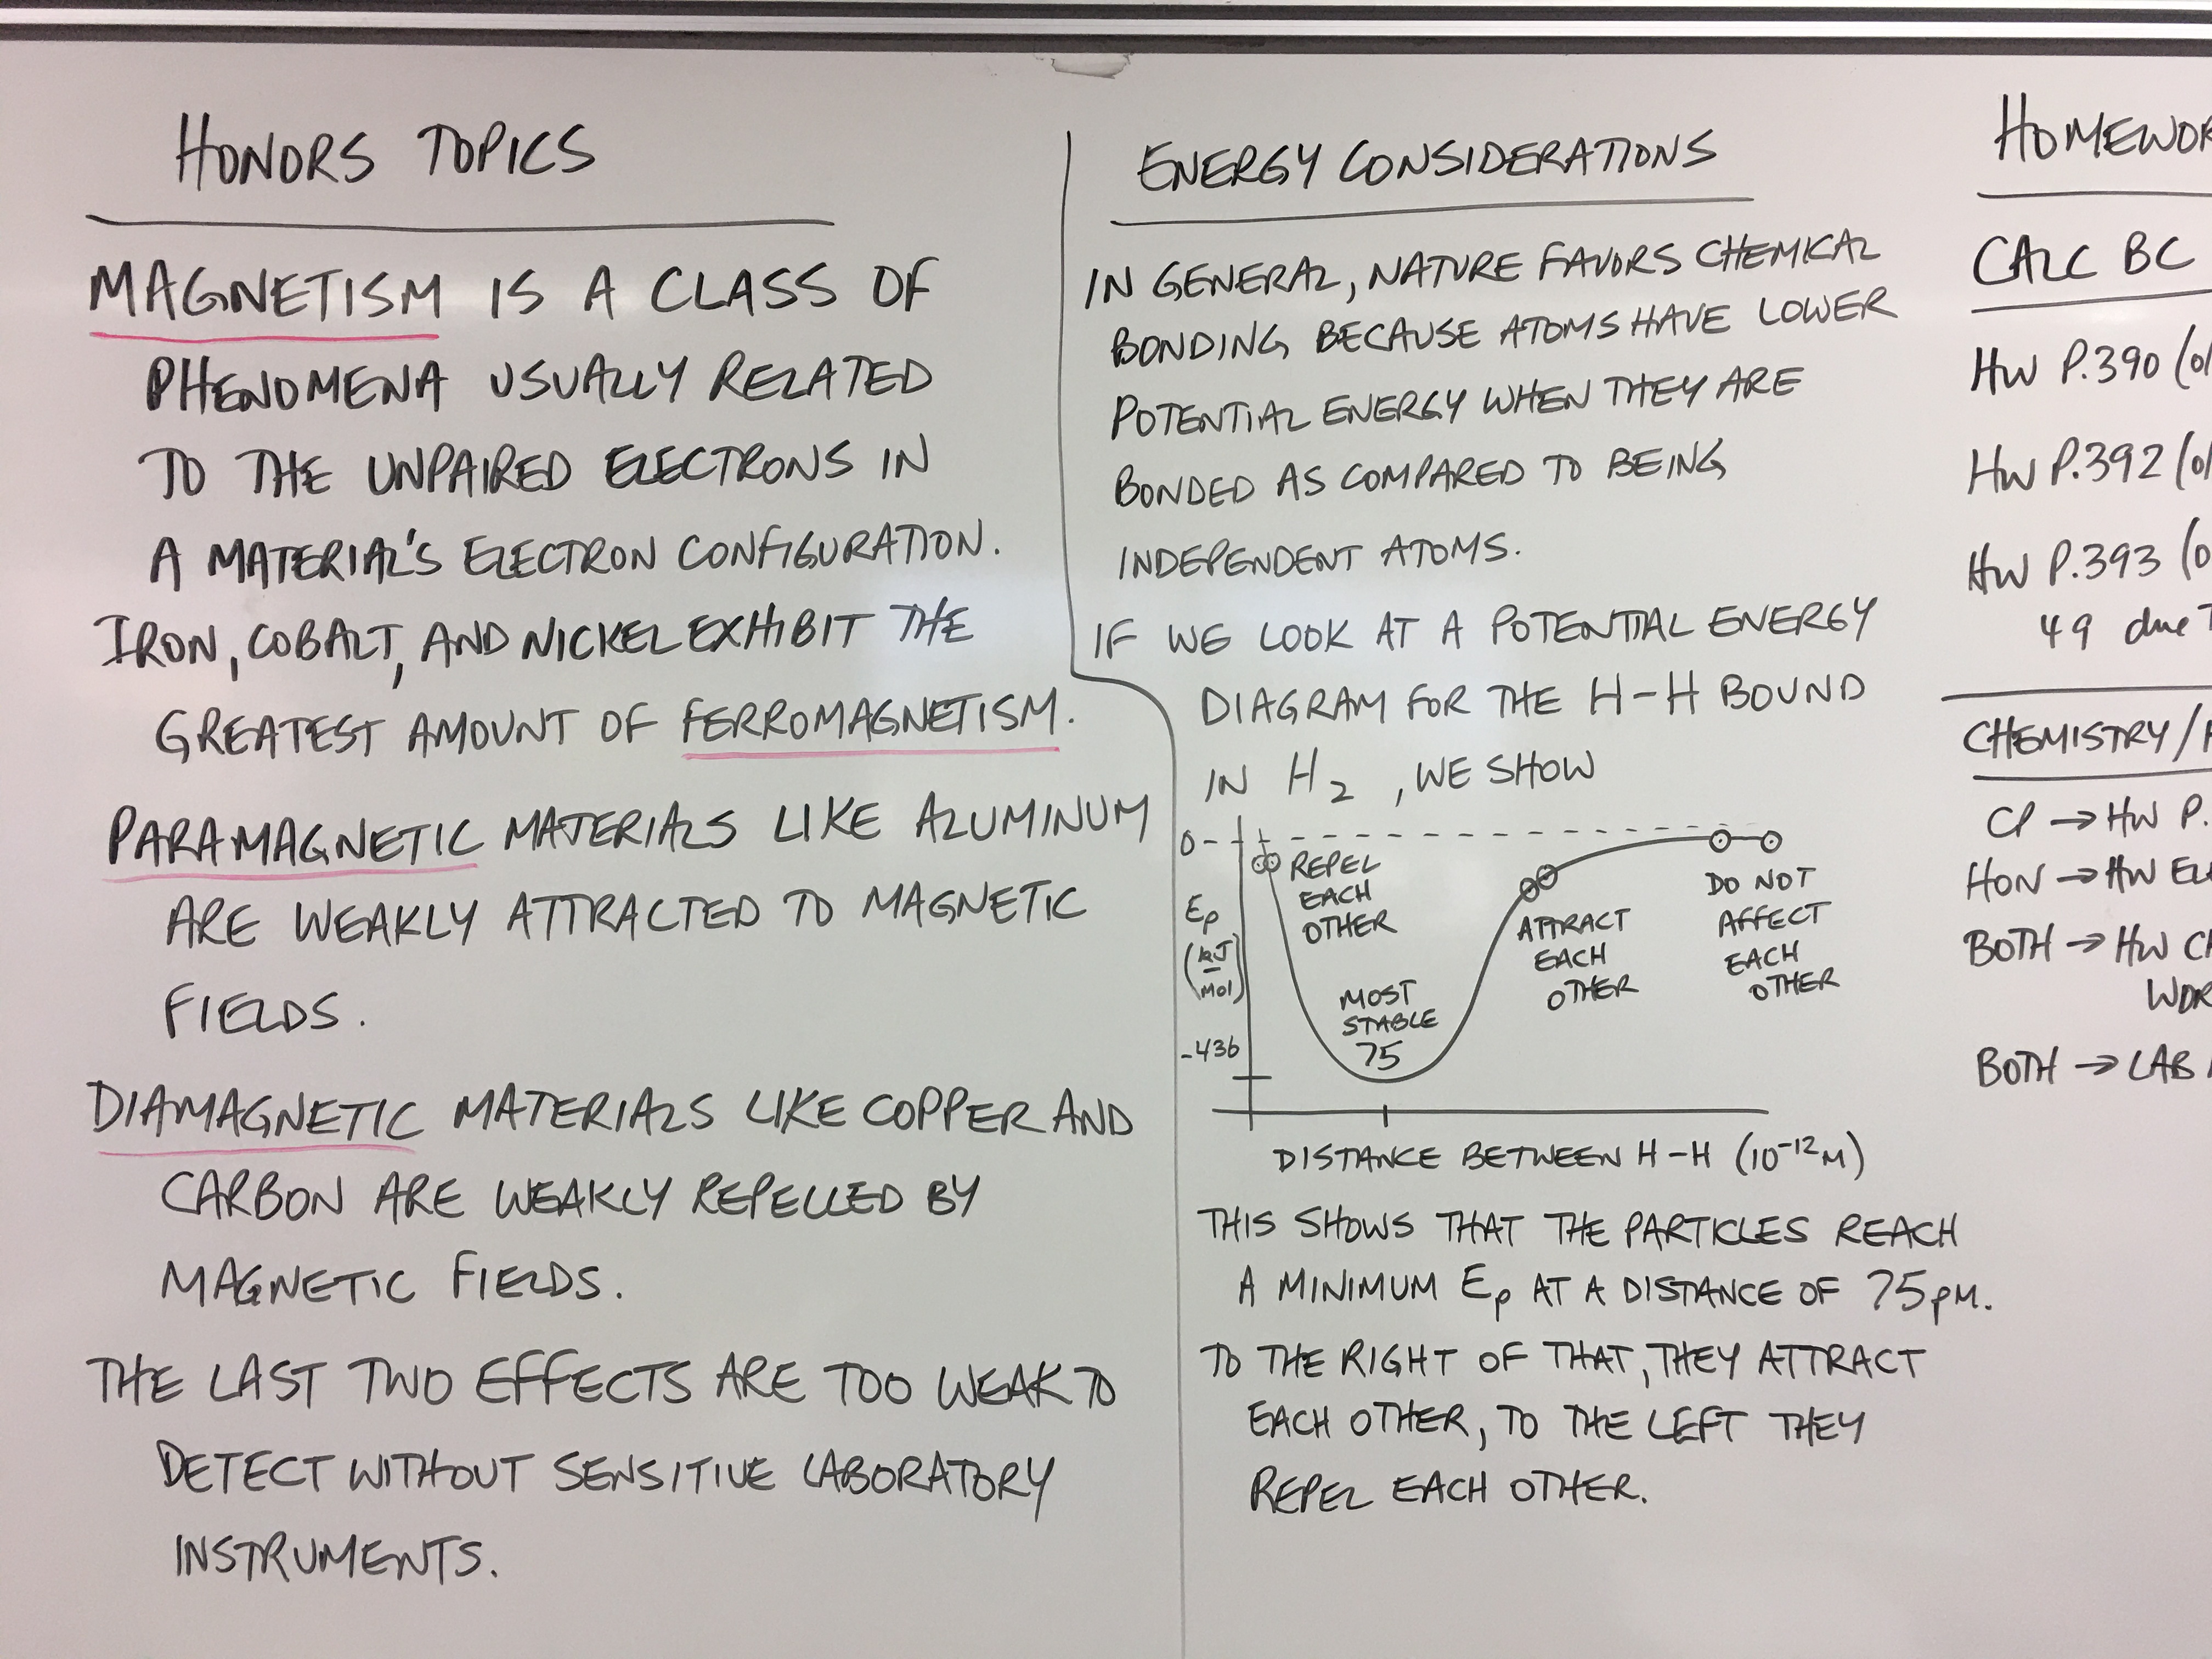 HONORS TOPICS
MAGNETISM IS A CLASS OF
PHENOMENA USUALLY RELATED
TO THE UNPAIRED ELECTRONS IN
A MATERIAL'S ELECTRON CONFIGURATION.
IRON, COBALT, AND NICKEL EXHIBIT THE
GREATEST AMOUNT OF FERROMAGNETISM.
PARAMAGNETIC MATERIALS LIKE ALUMINUM
ARE WEAKLY ATTRACTED TO MAGNETIC
FIELDS.
DIAMAGNETIC MATERIALS LIKE COPPER AND
CARBON ARE WEAKLY REPELLED BY
MAGNETIC FIELDS.
THE LAST TWO EFFECTS ARE TOO WEAK TO
DETECT WITHOUT SENSITIVE LABORATORY
INSTRUMENTS.
ENERGY CONSIDERATIONS
IN GENERAL, NATURE FAVORS CHEMICAL
BONDING BECAUSE ATOMS HAVE LOWER
POTENTIAL ENERGY WHEN THEY ARE
BONDED AS COMPARED TO BEING
INDEPENDENT ATOMS.
IF WE LOOK AT A POTENTIAL ENERGY
DIAGRAM FOR THE H-H BOUND
IN H2, WE SHOW
0
REPEL
EACH
OTHER
Ep
(kJ/mol)
-436
MOST
STABLE
75
ATTRACT
EACH
OTHER
DO NOT
AFFECT
EACH
OTHER
DISTANCE BETWEEN H-H (10⁻¹²M)
THIS SHOWS THAT THE PARTICLES REACH
A MINIMUM Ep AT A DISTANCE OF 75pM.
TO THE RIGHT OF THAT, THEY ATTRACT
EACH OTHER, TO THE LEFT THEY
REPEL EACH OTHER.
HOMEWOR
CALC BC
HW P.390 (
HW P.392 (
HW P.393 (
49 due
CHEMISTRY/
CP → HW P.
HON → HW
BOTH → HW
BOTH → LAB